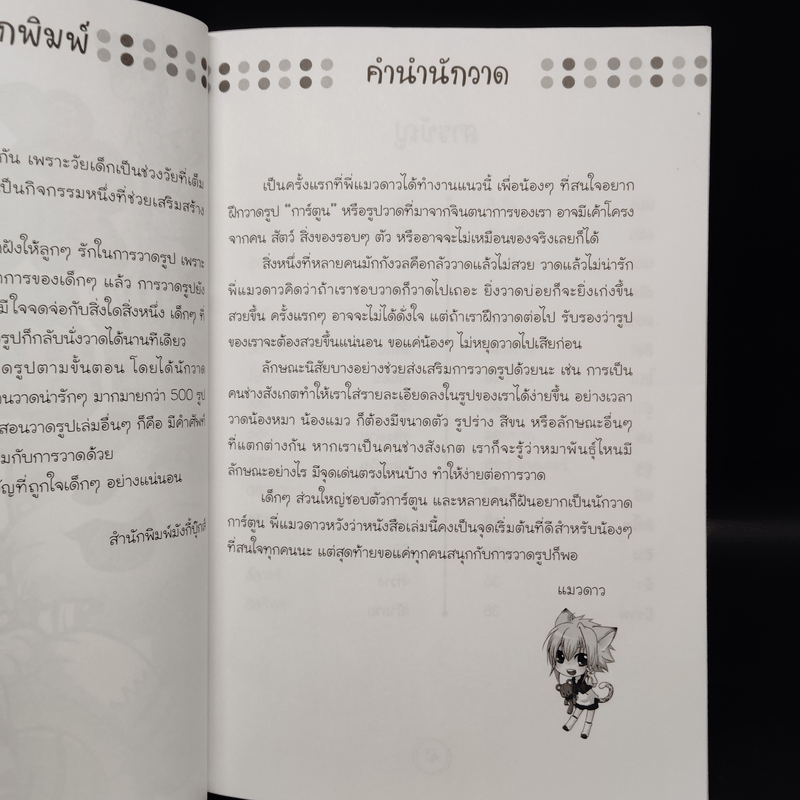 กพิมพ์
กัน เพราะวัยเด็กเป็นช่วงวัยที่เต็ม
เป็นกิจกรรมหนึ่งที่ช่วยเสริมสร้าง
ฝังให้ลูกๆ รักในการวาดรูป เพราะ
การของเด็กๆ แล้ว การวาดรูปยัง
มีใจจดจ่อกับสิ่งใดสิ่งหนึ่ง เด็กๆ ที่
รูปก็กลับนั่งวาดได้นานทีเดียว
ดรูปตามขั้นตอน โดยได้นักวาด
นวาดน่ารักๆ มากมายกว่า 500 รูป
สอนวาดรูปเล่มอื่นๆ ก็คือ มีคำศัพท์
มกับการวาดด้วย
ัญที่ถูกใจเด็กๆ อย่างแน่นอน
สำนักพิมพ์มังกี้บุ๊กส์
คำนำนักวาด
เป็นครั้งแรกที่พี่แมวดาวได้ทำงานแนวนี้ เพื่อน้องๆ ที่สนใจอยาก
ฝึกวาดรูป “การ์ตูน” หรือรูปวาดที่มาจากจินตนาการของเรา อาจมีเค้าโครง
จากคน สัตว์ สิ่งของรอบๆ ตัว หรืออาจจะไม่เหมือนของจริงเลยก็ได้
สิ่งหนึ่งที่หลายคนมักกังวลคือกลัววาดแล้วไม่สวย วาดแล้วไม่น่ารัก
พี่แมวดาวคิดว่าถ้าเราชอบวาดก็วาดไปเถอะ ยิ่งวาดบ่อยก็จะยิ่งเก่งขึ้น
สวยขึ้น ครั้งแรกๆ อาจจะไม่ได้ดั่งใจ แต่ถ้าเราฝึกวาดต่อไป รับรองว่ารูป
ของเราจะต้องสวยขึ้นแน่นอน ขอแค่น้องๆ ไม่หยุดวาดไปเสียก่อน
ลักษณะนิสัยบางอย่างช่วยส่งเสริมการวาดรูปด้วยนะ เช่น การเป็น
คนช่างสังเกตทำให้เราใส่รายละเอียดลงในรูปของเราได้ง่ายขึ้น อย่างเวลา
วาดน้องหมา น้องแมว ก็ต้องมีขนาดตัว รูปร่าง สีขน หรือลักษณะอื่นๆ
ที่แตกต่างกัน หากเราเป็นคนช่างสังเกต เราก็จะรู้ว่าหมาพันธุ์ไหนมี
ลักษณะอย่างไร มีจุดเด่นตรงไหนบ้าง ทำให้ง่ายต่อการวาด
เด็กๆ ส่วนใหญ่ชอบตัวการ์ตูน และหลายคนก็ฝันอยากเป็นนักวาด
การ์ตูน พี่แมวดาวหวังว่าหนังสือเล่มนี้คงเป็นจุดเริ่มต้นที่ดีสำหรับน้องๆ
ที่สนใจทุกคนนะ แต่สุดท้ายขอแค่ทุกคนสนุกกับการวาดรูปก็พอ
แมวดาว